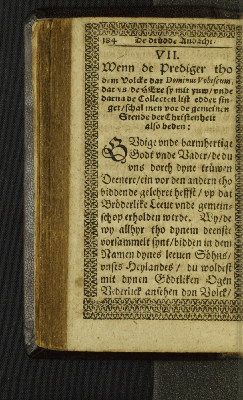 184 De drüdde Andacht/
VII.
Wenn de Prediger tho
dem Volcke dat Dominus Vobiscum,
dat ys de HEre sy mit yuw/ vnde
darna de Collecten list edder sin-
get/ schal men vor de gemenen
Stende der Christenheit
also beden:
GVdige vnde barmhertige
Godt vnde Vader/ de du
vns dorch dyne trüwen
Deenere/ ein vor den andern tho
biddende gelehret heffst/ vp dat
Bröderlike Leeue vnde gemein-
schop erholden werde. Wy/ de
wy allhyr tho dynem deenste
vorsammelt synt/ bidden in dem
Namen dynes leeuen Söhns/
vnses Heylandes/ du woldest
mit dynen Gödtliken Ogen
Vederlick ansehen den Volck/